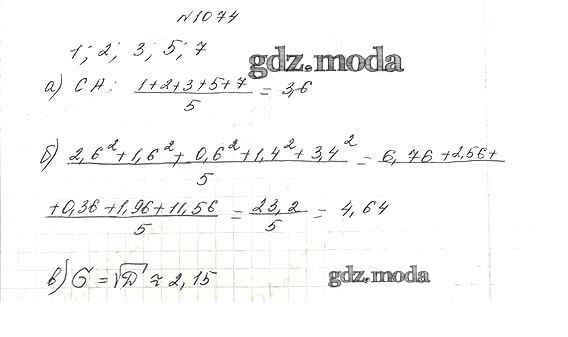 №1074
1; 2; 3; 5; 7
gdz.moda
а) СА: (1+2+3+5+7)/5 = 3,6
б) (2,6²+1,6²+0,6²+1,4²+3,4²)/5 = 6,76+2,56+
+0,36+1,96+11,56/5 = 23,2/5 = 4,64
в) σ = √D ≈ 2,15
gdz.moda